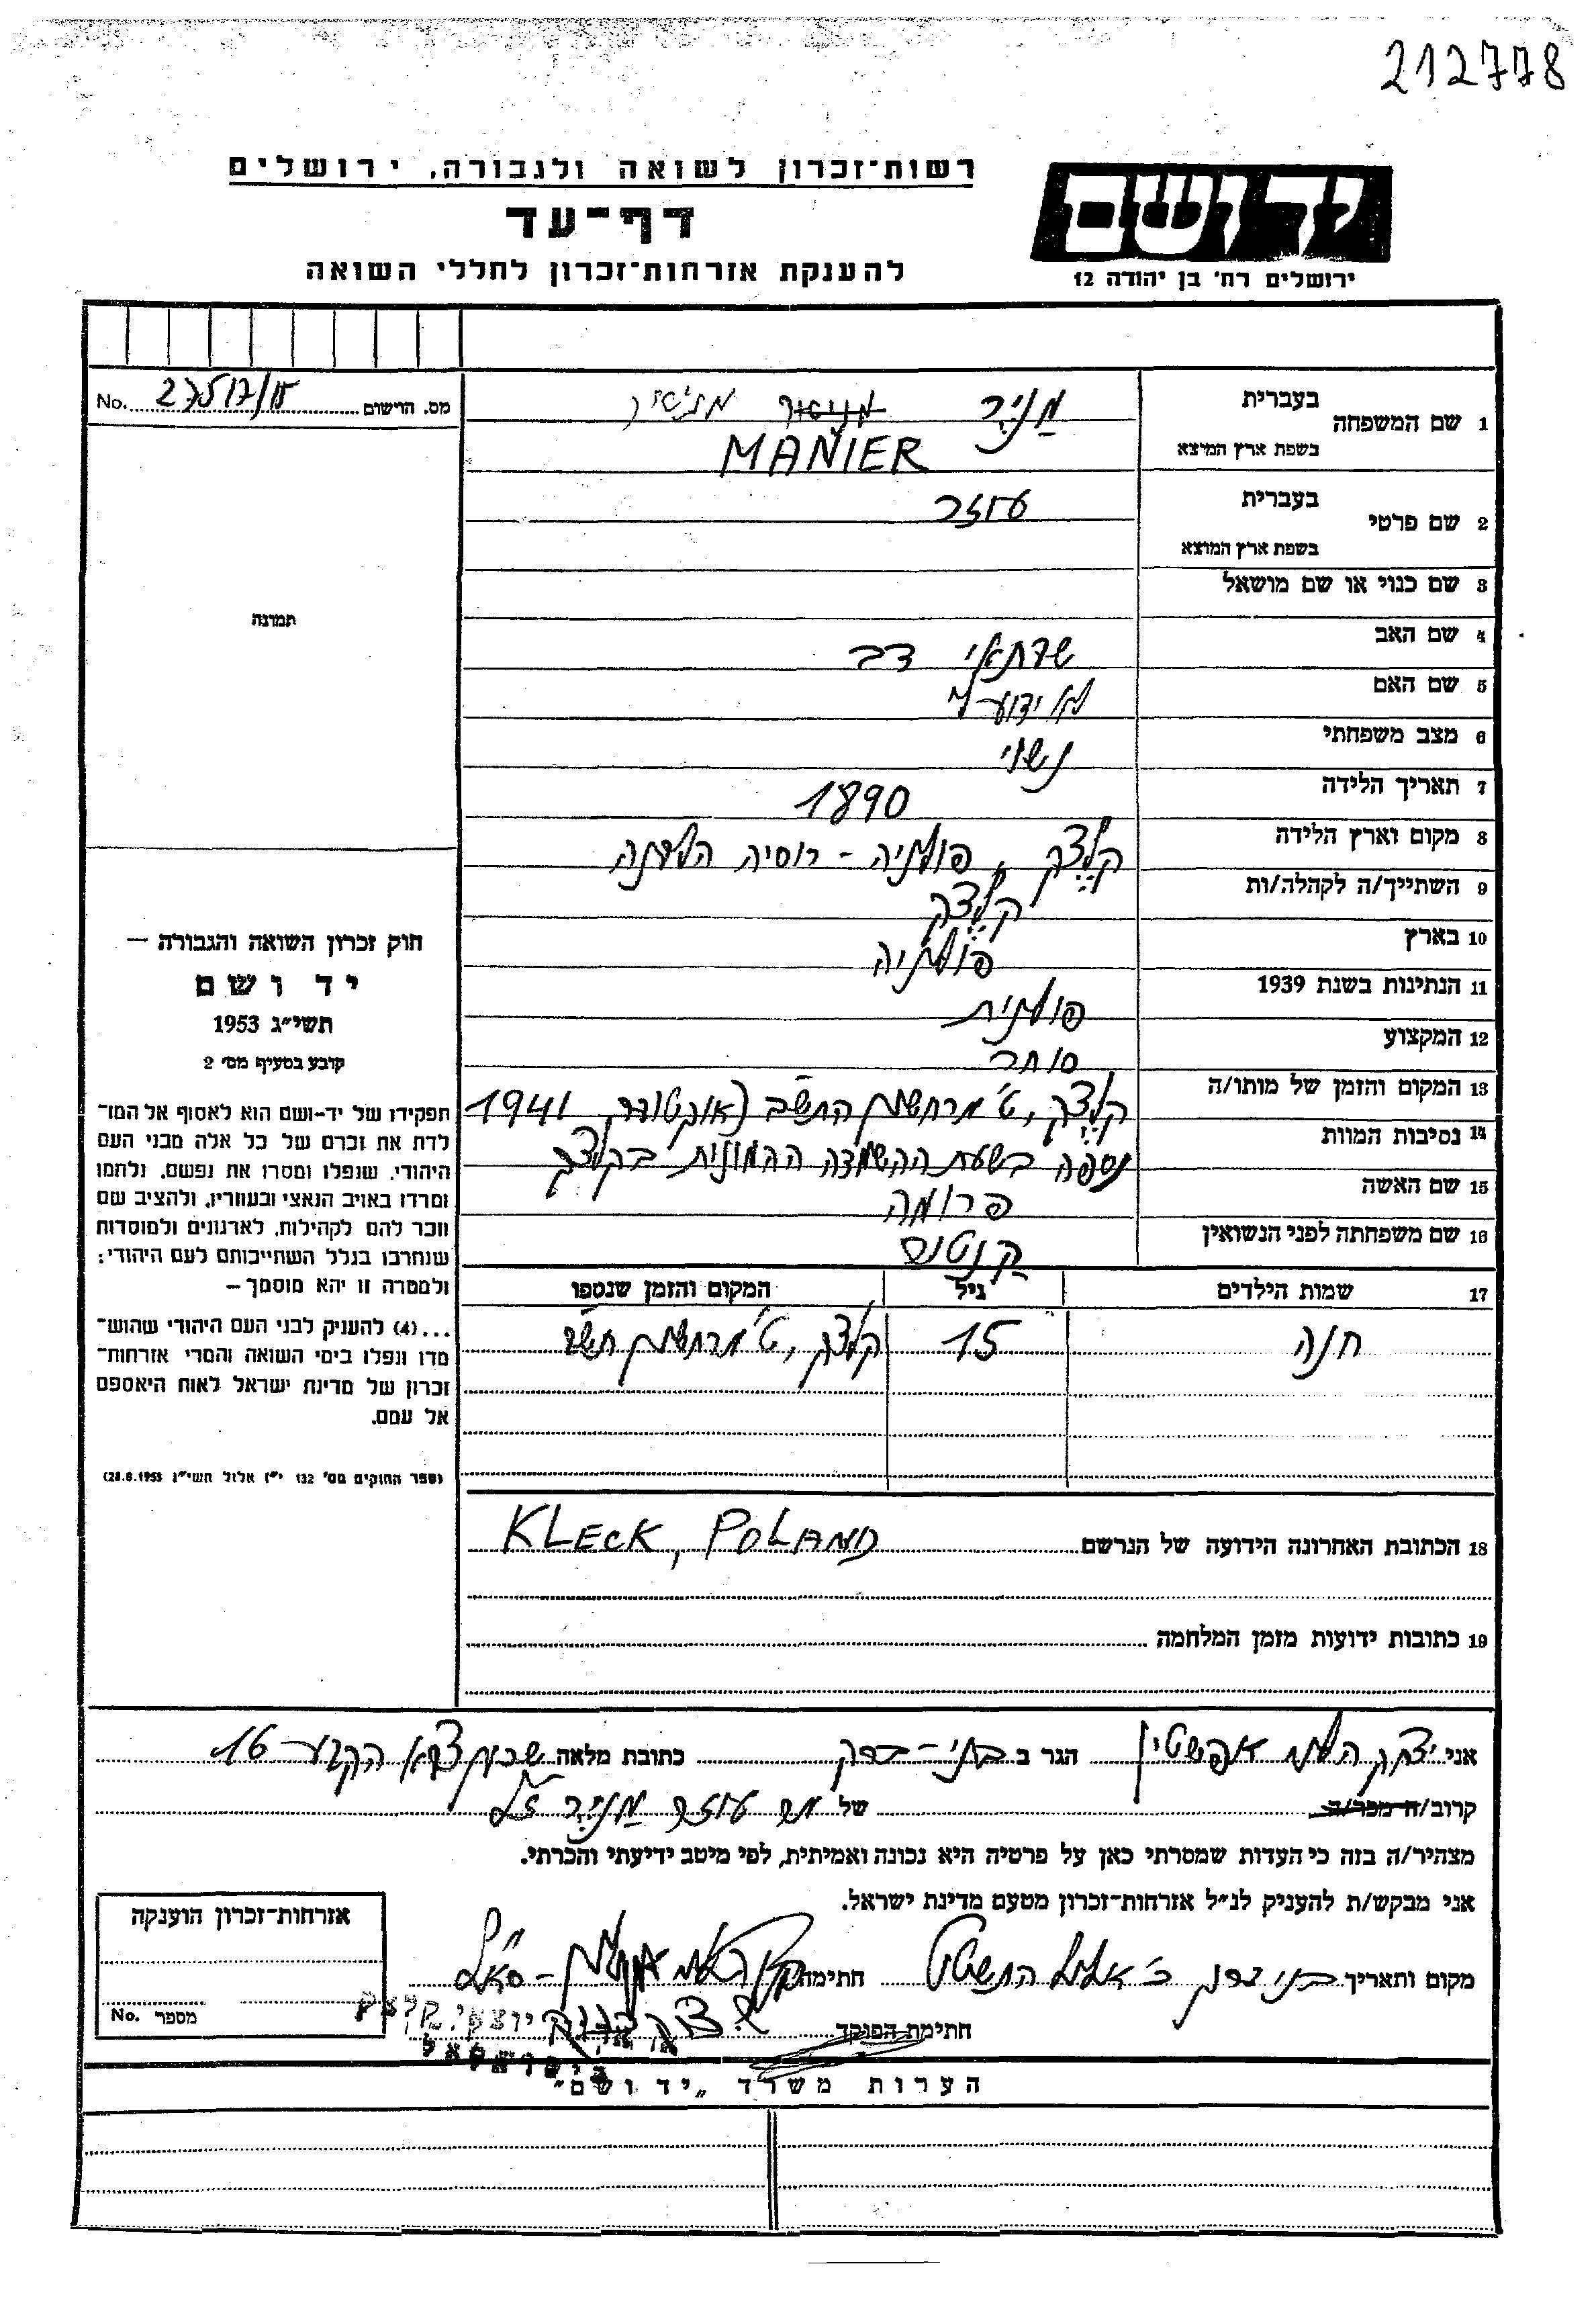 212778
רשות־זכרון לשואה ולגבורה, ירושלים
דף־עד
להענקת אזרחות־זכרון לחללי השואה
יד ושם
ירושלים רח' בן יהודה 12
מס. הרישום 27517/15 No.
1 שם המשפחה בעברית מַנְיֶר
בשפת ארץ המוצא MANIER
2 שם פרטי בעברית עוזר
בשפת ארץ המוצא
3 שם כנוי או שם מושאל
4 שם האב שבתאי דב
5 שם האם לא ידוע לי
6 מצב משפחתי נשוי
7 תאריך הלידה 1890
8 מקום וארץ הלידה קלצק, פולניה - רוסיה הלבנה
9 השתייך/ה לקהלה/ות קלצק
10 בארץ פולניה
11 הנתינות בשנת 1939 פולנית
12 המקצוע סוחר
13 המקום והזמן של מותו/ה קלצק, ט' מרחשון התש"ב (אוקטובר 1941
14 נסיבות המוות נספה בשעת ההשמדה ההמונית בקלצק
15 שם האשה פרומה
16 שם משפחתה לפני הנשואין
17 שמות הילדים גיל המקום והזמן שנספו
חנה 15 קלצק, ט' מרחשון תש"ב
תמונה
חוק זכרון השואה והגבורה —
יד ושם
תשי"ג 1953
קובע בסעיף מס' 2
תפקידו של יד-ושם הוא לאסוף אל המו־
לדת את זכרם של כל אלה מבני העם
היהודי, שנפלו ומסרו את נפשם, נלחמו
ומרדו באויב הנאצי ובעוזריו, ולהציב שם
וזכר להם לקהילות, לארגונים ולמוסדות
שנחרבו בגלל השתייכותם לעם היהודי;
ולמטרה זו יהא מוסמך —
...(4) להעניק לבני העם היהודי שהוש־
מדו ונפלו בימי השואה והמרי אזרחות־
זכרון של מדינת ישראל לאות היאספם
אל עמם.
(ספר החוקים מס' 132 י"ז אלול תשי"ג 28.8.1953)
18 הכתובת האחרונה הידועה של הנרשם KLECK, POLAND
19 כתובות ידועות מזמן המלחמה
אני יצחק הלוי אפשטין הגר ב בני-ברק כתובת מלאה שכון צבא הקבע 16
קרוב/ה מכר/ה של מר עוזר מַנְיֶר ז"ל
מצהיר/ה בזה כי העדות שמסרתי כאן על פרטיה היא נכונה ואמיתית, לפי מיטב ידיעתי והכרתי.
אני מבקש/ת להעניק לנ"ל אזרחות־זכרון מטעם מדינת ישראל.
מקום ותאריך בני ברק כ' אלול התשט"ו חתימה
חתימת הפוקד
יוצאי קלצק
בישראל
אזרחות־זכרון הוענקה
מספר No.
הערות משרד „יד ושם"